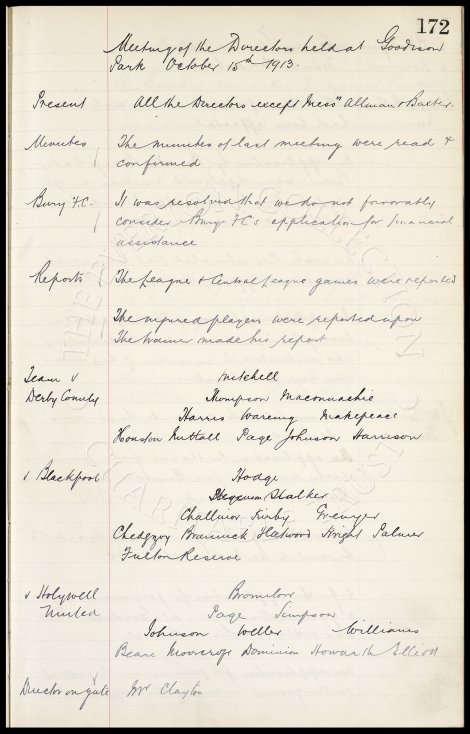 172
Meeting of the Directors held at Goodison
Park October 15th 1913.
Present All the Directors except Mess" Allman & Baxter.
Minutes The minutes of last meeting were read &
confirmed
Bury F.C. It was resolved that we do not favorably
consider Bury F.Cs application for financial
assistance
Reports The League & Central League games were reported
The injured players were reported upon
The trainer made his report
Team v Mitchell
Derby County Thompson Maconnachie
Harris Wareing Makepeace
Houston Nuttall Page Johnson Harrison
v Blackpool Hodge
Stevenson Stalker
Challinor Kirby Grenyer
Chedgzoy Brannick Wright Palmer
Fulton Reserve
v Holywell Bromilow
United Page Simpson
Johnson Weller Williams
Beare Dominion Howarth Elliott
Director on gate Mr Clayton
THE EVERTON COLLECTION
CHARITABLE TRUST